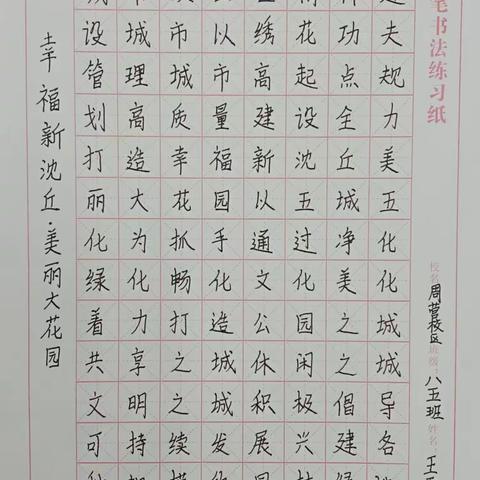 幸福新沈丘·美丽大花园
设城市以绣花功夫
管理城市高起点规
划高质量建设全力
打造幸福新沈丘美
丽大花园以五城五
化为抓手通过净化
绿化畅化文化美化
着力打造公园之城
共享之城休闲之城
文明之城积极倡导
可持续发展兴建各
笔书法练习纸
校名 周营校区 班级 八五班 姓名 王